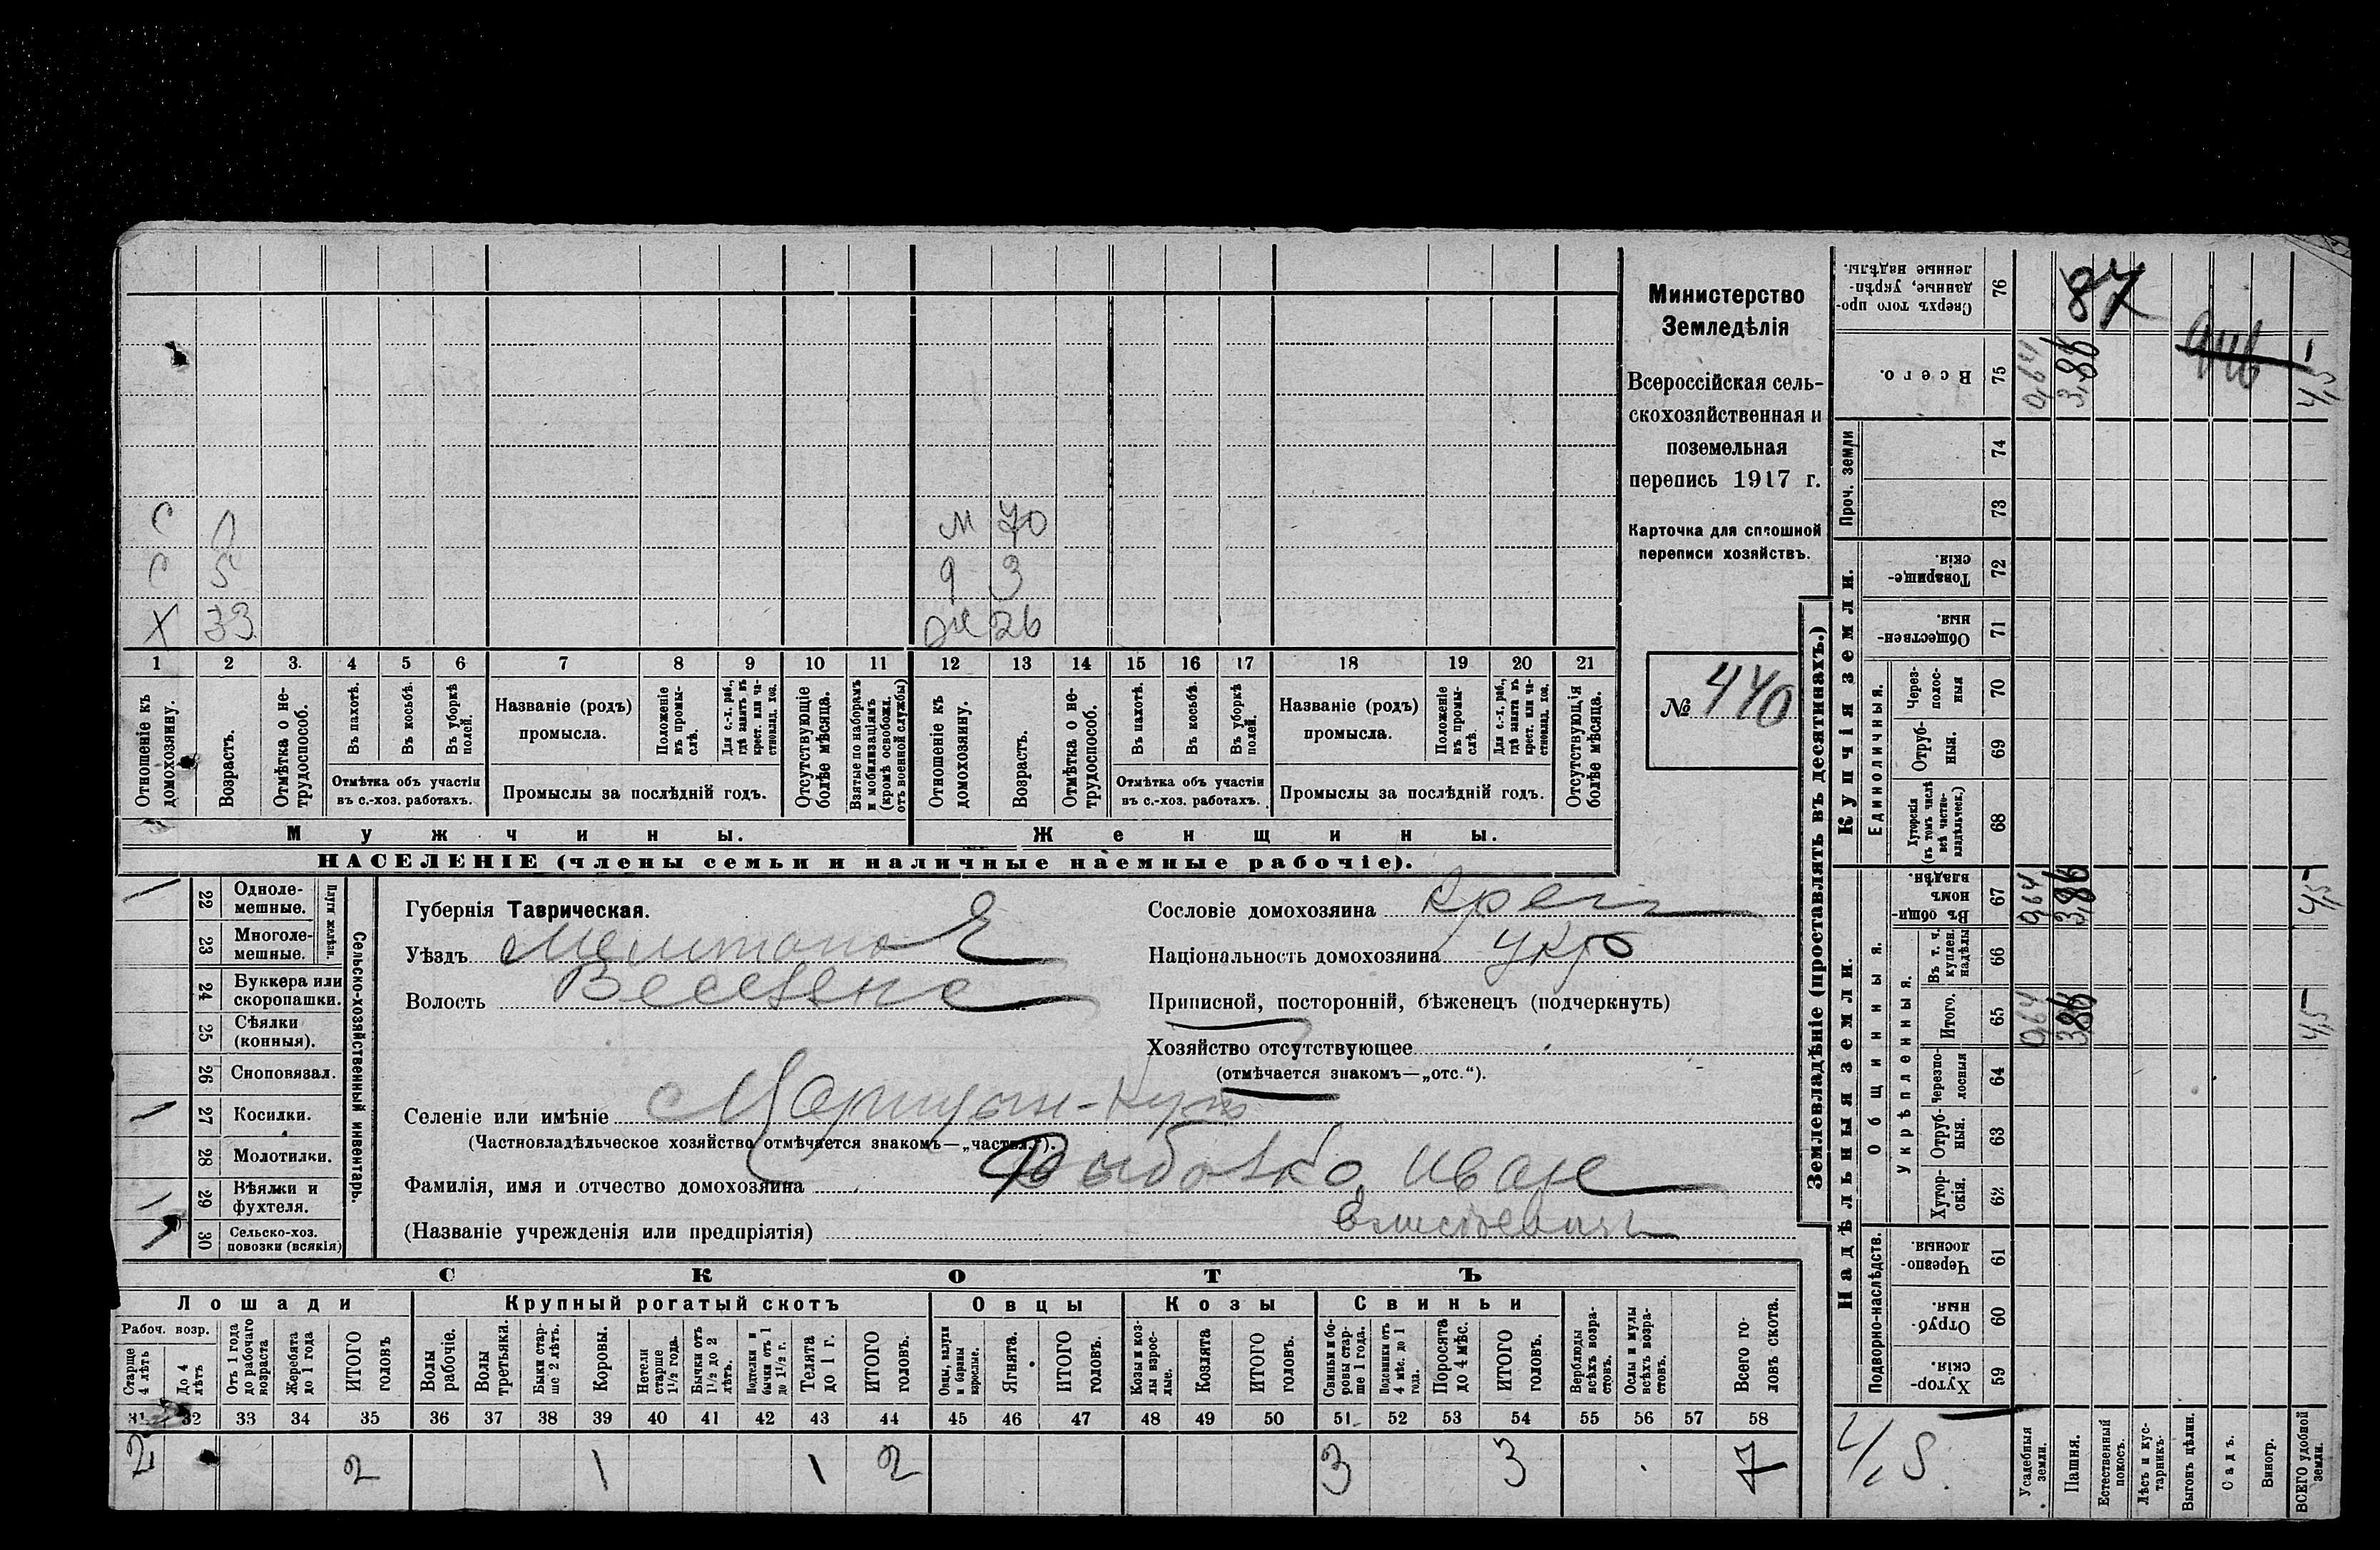 С
5
Х 33
М 70
3
26
1 2 3. 4 5 6 7 8 9 10 11 12 13 14 15 16 17 18 19 20 21
Отношеніе къ домохозяину.
Возрастъ.
Отмѣтка о не-трудоспособ.
Въ пахотѣ.
Въ косьбѣ.
Въ уборкѣ полей.
Отмѣтка объ участіи
въ с.-хоз. работахъ.
Названіе (родъ)
промысла.
Положеніе въ промы-слѣ.
Для с.-х. раб., гдѣ занятъ въ крест. или ча-стновлад. хоз.
Промыслы за послѣдній годъ.
Отсутствующіе болѣе мѣсяца.
Взятые по наборамъ и мобилизаціямъ (кромѣ освобожд. отъ военной службы)
Отношеніе къ домохозяину.
Возрастъ.
Отмѣтка о не-трудоспособ.
Въ пахотѣ.
Въ косьбѣ.
Въ уборкѣ полей.
Отмѣтка объ участіи
въ с.-хоз. работахъ.
Названіе (родъ)
промысла.
Положеніе въ промы-слѣ.
Для с.-х. раб., гдѣ занята въ крест. или ча-стновлад. хоз.
Промыслы за послѣдній годъ.
Отсутствующія болѣе мѣсяца.
Мужчины.
Женщины.
НАСЕЛЕНІЕ (члены семьи и наличные наемные рабочіе).
Министерство
Земледѣлія
Всероссійская сель-
скохозяйственная и
поземельная
перепись 1917 г.
Карточка для сплошной
переписи хозяйствъ.
№ 440
22 Одноле-
мешные.
23 Многоле-
мешные.
Плуги желѣзн.
24 Буккера или
скоропашки.
25 Сѣялки
(конныя).
26 Сноповязал.
27 Косилки.
28 Молотилки.
29 Вѣялки и
фухтеля.
30 Сельско-хоз.
повозки (всякія)
Сельско-хозяйственный инвентарь.
Губернія Таврическая.
Уѣздъ
Волость
Селеніе или имѣніе
(Частновладѣльческое хозяйство отмѣчается знакомъ—„частвл.“).
Фамилія, имя и отчество домохозяина Иван
(Названіе учрежденія или предпріятія)
Сословіе домохозяина Крест
Національность домохозяина Укр
Приписной, посторонній, бѣженецъ (подчеркнуть)
Хозяйство отсутствующее
(отмѣчается знакомъ—„отс.“).
СКОТЪ
Лошади
Крупный рогатый скотъ
Овцы
Козы
Свиньи
Рабоч. возр.
Старше 4 лѣтъ
До 4 лѣтъ
Отъ 1 года до рабочаго возраста
Жеребята до 1 года
ИТОГО головъ
Волы рабочіе.
Волы третьяки.
Быки стар-ше 2 лѣтъ.
Коровы.
Нетели старше 1½ года.
Бычки отъ 1½ до 2 лѣтъ.
Подтелки и бычки отъ 1 до 1½ г.
Телята до 1 г.
ИТОГО головъ.
Овцы, валухи и бараны взрослые.
Ягнята.
ИТОГО головъ.
Козы и коз-лы взрос-лые.
Козлята
ИТОГО головъ.
Свиньи и бо-ровы стар-ше 1 года.
Подсвинки отъ 4 мѣс. до 1 года.
Поросята до 4 мѣс.
ИТОГО головъ.
Верблюды всѣхъ возра-стовъ.
Ослы и мулы всѣхъ возра-стовъ.
Всего го-ловъ скота.
31 32 33 34 35 36 37 38 39 40 41 42 43 44 45 46 47 48 49 50 51 52 53 54 55 56 57 58
2 2 1 1 2 3 3 7
Землевладѣніе (проставлять въ десятинахъ.)
Сверхъ того про-данные, укрѣп-ленные надѣлы. 76 87
Всего. 75 0,64 3,86 4,5
Проч. земли
74
73
Купчія земли.
Товарище-скія. 72
Обществен-ныя. 71
Единоличныя.
Через-полос-ныя 70
Отруб-ныя. 69
Хуторскія (въ томъ числѣ всѣ частно-владѣльческ.) 68
Надѣльныя земли.
Общинныя.
Въ общин-номъ владѣн. 67 0,64 3,86 4,5
Укрѣпленныя.
Въ т. ч. куплен. надѣлы 66
Итого. 65 0,64 3,86 4,5
Черезпо-лосныя 64
Отруб-ныя. 63
Хутор-скія. 62
Подворно-наслѣдств.
Черезпо-лосныя. 61
Отруб-ныя. 60
Хутор-скія. 59
4,5
Усадебныя земли.
Пашня.
Естественный покосъ.
Лѣсъ и кус-тарникъ.
Выгонъ цѣлин.
Садъ.
Виногр.
ВСЕГО удобной земли.